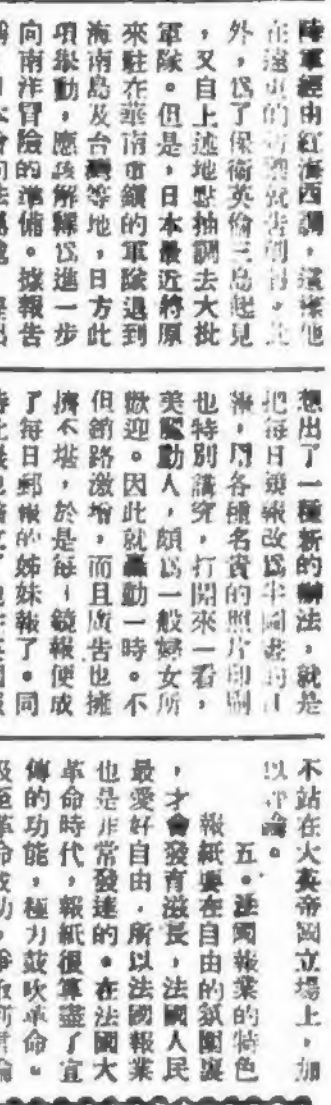 陸軍經由紅海西調，這樣他
在遠東的
外，爲了保衛英倫三島起見
，又自上述地點抽調去大批
軍隊。但是，日本最近將原
來駐在華南市鎮的軍隊退到
海南島及台灣等地，日方此
項舉動，應該解釋爲進一步
向南洋冒險的準備。據報告
想出了一種新的辦法，就是
把每日鏡報改爲半圖畫的
，用各種名貴的照片印刷
也特別講究，打開來一看，
美麗動人，頗爲一般婦女所
歡迎。因此就轟動一時。不
但銷路激增，而且廣告也擁
擠不堪，於是每日鏡報便成
了每日郵報的姊妹報了。同
不站在大英帝國立場上，加
以評論。
五。法國報業的特色
報紙要在自由的氛圍裏
，才會發育滋長，法國人民
最愛好自由，所以法國報業
也是非常發達的。在法國大
革命時代，報紙很算盡了宣
傳的功能，極力鼓吹革命。